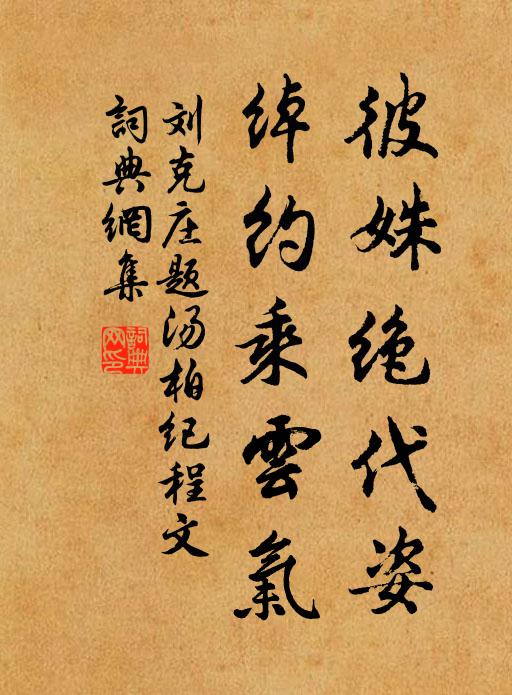 彼姝绝代姿
绰约乘雲氣
刘克庄题汤柏纪程文
詞典網集
詞典
网印